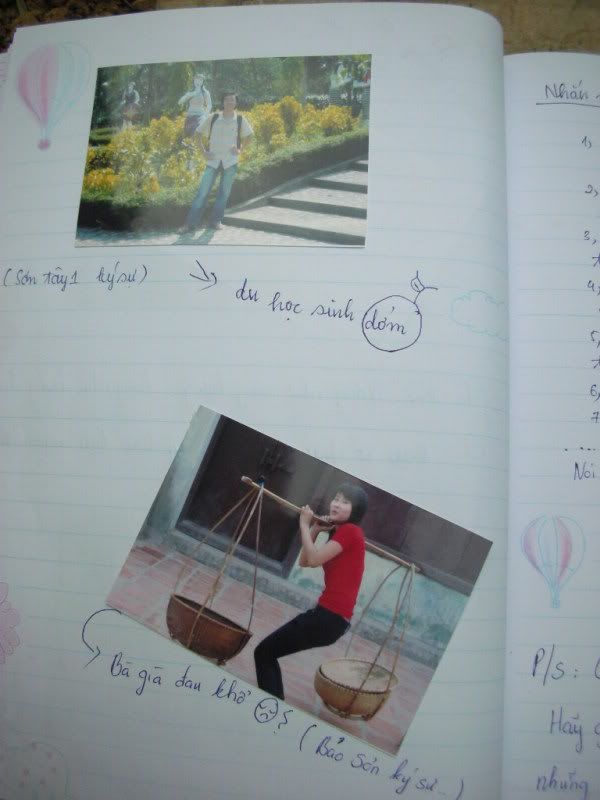 (Sơn tây1 ký sự)
du học sinh đởm
Bà già đau khổ ?
(Bảo Sơn ký sự...)
Nhắn
1,
2,
3,
4,
5,
6,
7
....
Nói
P/s:
Hãy
những